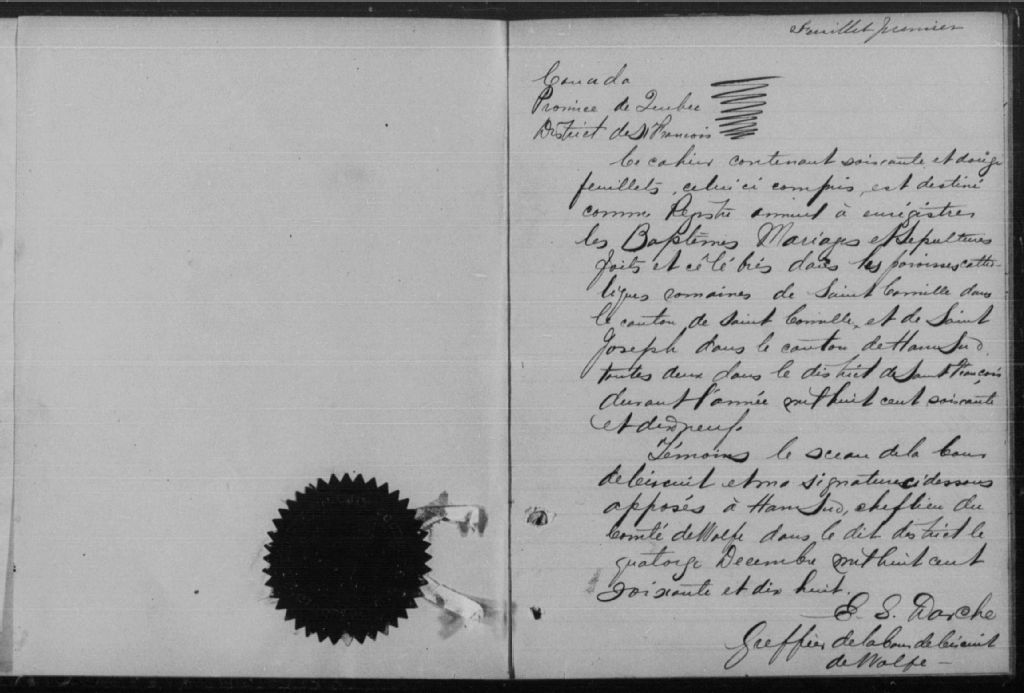 Feuillet premier
Canada
Province de Quebec
District de St Francois
Ce cahier contenant soixante et douze
feuillets, celui ci compris, est destiné
comme Registre à enrégistrer
les Baptêmes Mariages et Sépultures
faits et célébrés dans les paroisses catho-
liques romaines de Saint Camille dans
le canton de Saint Camille, et de Saint
Joseph dans le canton de Ham Sud,
toutes deux dans le district de Saint Francois
durant l'année mil huit cent soixante
et dix neuf.
Témoins le sceau de la Cour
de Circuit et ma signature ci dessous
apposés à Ham Sud, chef lieu du
Comté de Wolfe dans le dit district le
quatorze Decembre mil huit cent
soixante et dix huit.
E. S. Darche
Greffier de la Cour de Circuit
de Wolfe –